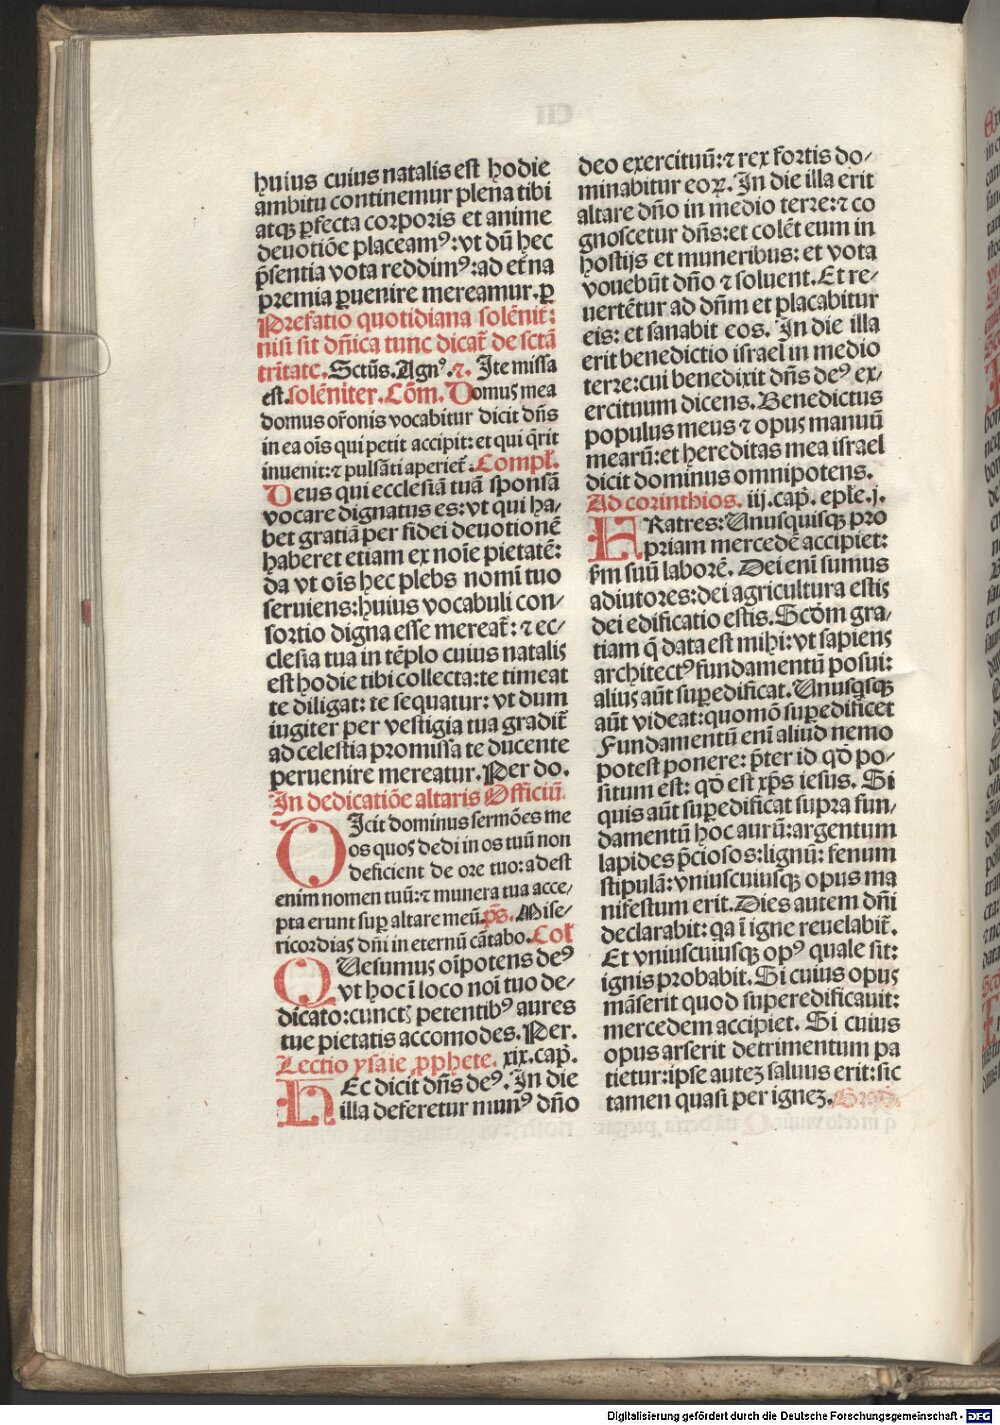 huius cuius natalis est hodie
ambitu continemur plena tibi
atqꝫ ꝑfecta corporis et anime
deuotiōe placeamꝰ: vt dū hec
p̄sentia vota reddimꝰ: ad et̄na
premia ꝑuenire mereamur. ꝑ
Prefatio quotidiana solēnit̄:
nisi sit dn̄ica tunc dicat̄ de sctā
trītate. Sctūs. Agnꝰ. ⁊. Ite missa
est. solēniter. Cōm. Domus mea
domus or̄onis vocabitur dicit dn̄s
in ea oīs qui petit accipit: et qui q̄rit
inuenit: ⁊ pulsāti aperiet̄. Compł.
Deus qui ecclesiā tuā sponsā
vocare dignatus es: vt qui ha⸗
bet gratiā per fidei deuotionē
haberet etiam ex noīe pietatē:
da vt oīs hec plebs nomī tuo
seruiens: huius vocabuli con⸗
sortio digna esse mereat̄: ⁊ ec⸗
clesia tua in tēplo cuius natalis
est hodie tibi collecta: te timeat
te diligat: te sequatur: vt dum
iugiter per vestigia tua gradit̄
ad celestia promissa te ducente
peruenire mereatur. Per do.
In dedicatiōe altaris Officiū.
DIcit dominus sermōes me
os quos dedi in os tuū non
deficient de ore tuo: adest
enim nomen tuū: ⁊ munera tua acce⸗
pta erunt suꝑ altare meū. ps̄. Mise⸗
ricordias dn̄i in eternū cātabo. Coł
QUesumus oīpotens deꝰ
vt hoc ī loco noī tuo de⸗
dicato: cunctꝭ petentibꝰ aures
tue pietatis accomodes. Per.
Lectio ysaie ꝓphete. xix. cap̄.
HEc dicit dn̄s deꝰ. In die
illa deferetur munꝰ dn̄o
deo exercituū: ⁊ rex fortis do⸗
minabitur eoꝝ. In die illa erit
altare dn̄o in medio terre: ⁊ co
gnoscetur dn̄s: et colēt eum in
hostijs et muneribus: et vota
vouebūt dn̄o ⁊ soluent. Et re⸗
uertētur ad dn̄m et placabitur
eis: et sanabit eos. In die illa
erit benedictio israel in medio
terre: cui benedixit dn̄s deꝰ ex⸗
ercituum dicens. Benedictus
populus meus ⁊ opus manuū
mearū: et hereditas mea israel
dicit dominus omnipotens.
Ad corinthios. iij. cap̄. epłe. j.
FRatres: Unusquisqꝫ pro
priam mercedē accipiet:
ẜm suū laborē. Dei enī sumus
adiutores: dei agricultura estis
dei edificatio estis. Scd̄m gra⸗
tiam q̄ data est mihi: vt sapiens
architectꝰ fundamentū posui:
alius aūt suꝑedificat. Unusq̇sqꝫ
aūt videat: quomō suꝑedificet
Fundamentū enī aliud nemo
potest ponere: p̄ter id qd̄ po⸗
situm est: qd̄ est xp̄s iesus. Si
quis aūt suꝑedificat supra fun⸗
damentū hoc aurū: argentum
lapides p̄ciosos: lignū: fenum
stipulā: vniuscuiusqꝫ opus ma
nifestum erit. Dies autem dn̄i
declarabit: qa ī igne reuelabit̄.
Et vniuscuiusqꝫ opꝰ quale sit:
ignis probabit. Si cuius opus
māserit quod superedificauit:
mercedem accipiet. Si cuius
opus arserit detrimentum pa
tietur: ipse autez saluus erit: sic
tamen quasi per ignez. Grad.
Digitalisierung gefördert durch die Deutsche Forschungsgemeinschaft - DFG